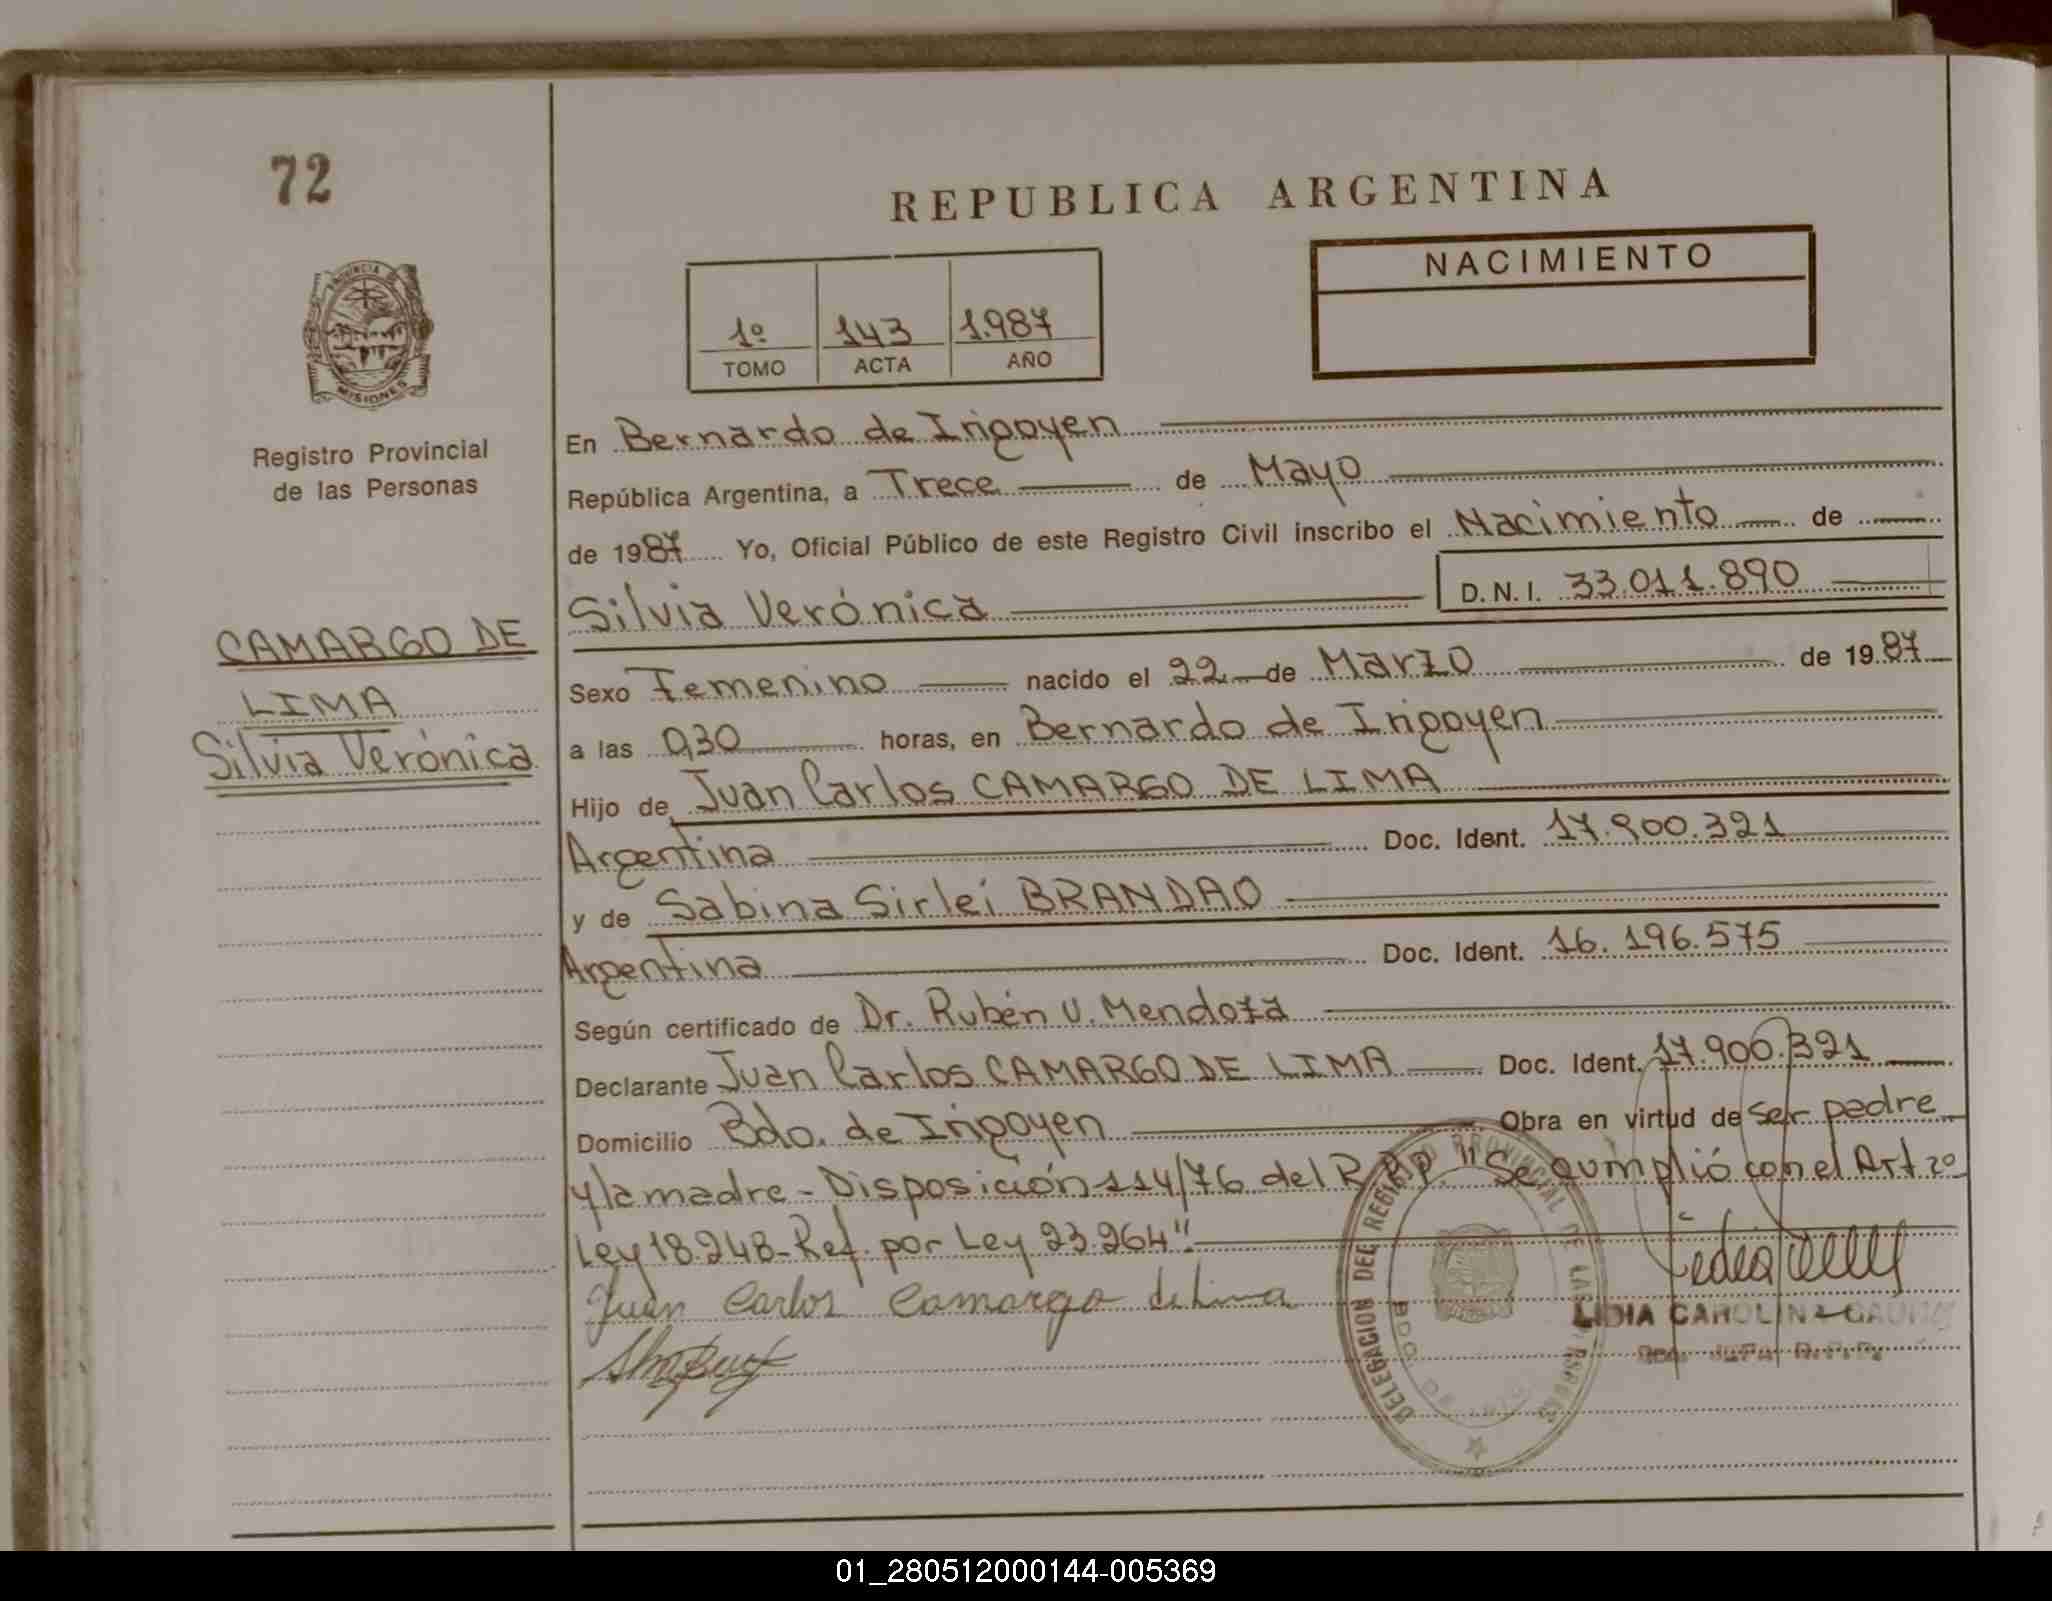 72
REPUBLICA ARGENTINA
PROVINCIA DE
MISIONES
Registro Provincial
de las Personas
1º 143 1.987
TOMO ACTA AÑO
NACIMIENTO
En Bernardo de Irigoyen
República Argentina, a Trece de Mayo
de 1987 Yo, Oficial Público de este Registro Civil inscribo el Nacimiento de
Silvia Verónica D.N.I. 33.011.890
CAMARGO DE
LIMA
Silvia Verónica
Sexo Femenino nacido el 22 de Marzo de 1987
a las 0,30 horas, en Bernardo de Irigoyen
Hijo de Juan Carlos CAMARGO DE LIMA
Argentina Doc. Ident. 17.900.321
y de Sabina Sirlei BRANDAO
Argentina Doc. Ident. 16.196.575
Según certificado de Dr. Rubén U. Mendoza
Declarante Juan Carlos CAMARGO DE LIMA Doc. Ident. 17.900.321
Domicilio Bdo. de Irigoyen Obra en virtud de ser padre
y la madre - Disposición 114/76 del R.P.P. "Se cumplió con el Art. 2º
Ley 18.248 - Ref. por Ley 23.264".
Juan Carlos Camargo de Lima
DELEGACION DEL REGISTRO PROVINCIAL DE LAS PERSONAS
BDO. DE
LIDIA CAROLINA
R.P.P.
01_280512000144-005369